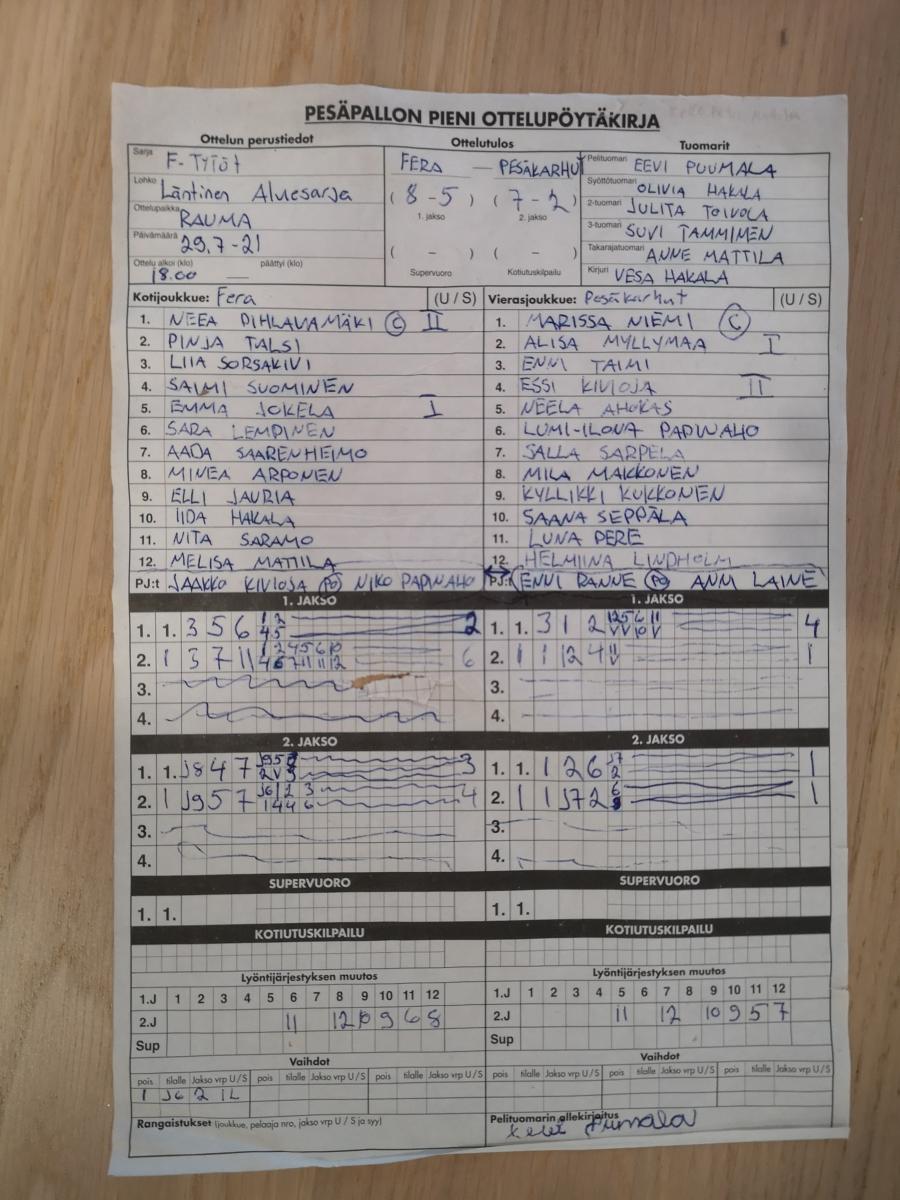 PESÄPALLON PIENI OTTELUPÖYTÄKIRJA
Ottelun perustiedot
Sarja F-TYTÖT
Lohko Läntinen Aluesarja
Ottelupaikka RAUMA
Päivämäärä 29.7-21
Ottelu alkoi (klo) 18.00 — päättyi (klo)
Ottelutulos
FERA — PESÄKARHUT
(8-5) (7-2)
1. jakso 2. jakso
( - ) ( - )
Supervuoro Kotiutuskilpailu
Tuomarit
Pelituomari EEVI PUUMALA
Syöttötuomari OLIVIA HAKALA
2-tuomari JULITA TOIVOLA
3-tuomari SUVI TAMMINEN
Takarajatuomari ANNE MATTILA
Kirjuri VESA HAKALA
Kotijoukkue: Fera (U / S)
1. NEEA PIHLAVAMÄKI C II
2. PINJA TALSI
3. LIIA SORSAKIVI
4. SAIMI SUOMINEN
5. EMMA JOKELA I
6. SARA LEMPINEN
7. AADA SAARENHEIMO
8. MINEA ARPONEN
9. ELLI JAURIA
10. IIDA HAKALA
11. NITA SARAMO
12. MELISA MATTILA
PJ:t JAAKKO KIVIOJA PO NIKO PAPINAHO
Vierasjoukkue: Pesäkarhut (U / S)
1. MARISSA NIEMI C
2. ALISA MYLLYMAA I
3. ENNI TAIMI
4. ESSI KIVIOJA II
5. NEELA AHOKAS
6. LUMI-ILONA PAPINAHO
7. SALLA SARPELA
8. MILA MAKKONEN
9. KYLLIKKI KUKKONEN
10. SAANA SEPPÄLÄ
11. LUNA PERE
12. HELMIINA LINDHOLM
PJ:t ENNI RANNE PO ANNI LAINE
1. JAKSO
1. 1. 3 5 6 1 2 2
4 5
2. 1 3 7 11 1 2 4 5 6 10 6
4 6 7 11 11 12
3.
4.
1. JAKSO
1. 1. 3 1 2 4
2. 1 1 12 4 1
3.
4.
2. JAKSO
1. 1. J8 4 7 3
2. 1 J9 5 7 J6 1 2 3 4
1 4 4 6
3.
4.
2. JAKSO
1. 1. 1 2 6 J7 1
2
2. 1 1 J7 2 6 1
3.
4.
SUPERVUORO
1. 1.
SUPERVUORO
1. 1.
KOTIUTUSKILPAILU
KOTIUTUSKILPAILU
Lyöntijärjestyksen muutos
1.J 1 2 3 4 5 6 7 8 9 10 11 12
2.J 11 12 10 9 6 8
Sup
Lyöntijärjestyksen muutos
1.J 1 2 3 4 5 6 7 8 9 10 11 12
2.J 11 12 10 9 5 7
Sup
Vaihdot
pois tilalle Jakso vrp U / S pois tilalle Jakso vrp U / S pois tilalle Jakso vrp U / S
1 J6 2 1L
Vaihdot
pois tilalle Jakso vrp U / S pois tilalle Jakso vrp U / S pois tilalle Jakso vrp U / S
Rangaistukset (joukkue, pelaaja nro, jakso vrp U / S ja syy)
Pelituomarin allekirjoitus